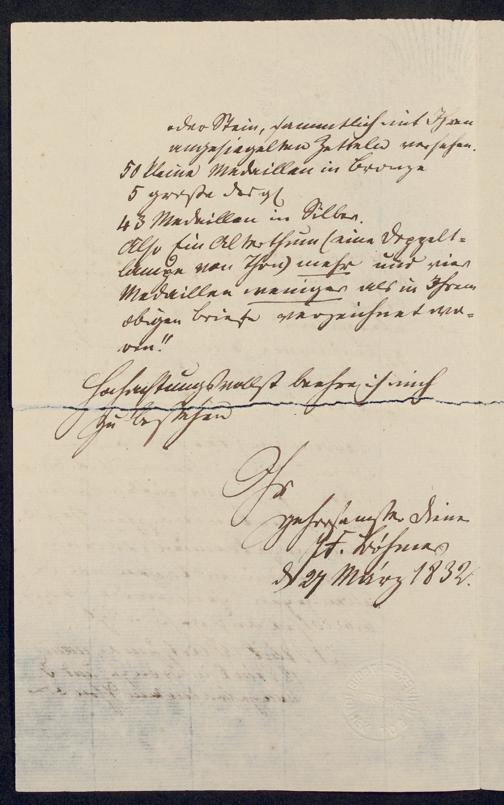 oder Stein, sammtlich mit Ihren
angesiegelten Zetteln versehen.
50 kleine Medaillen in Bronze
5 große desgl
43 Medaillen in Silber.
Also Ein Alterthum (eine Doppelt-
lampe von Thon) mehr und vier
Medaillen weniger als in Ihrem
obigen Briefe verzeichnet wa-
ren!!
Hochachtungsvollst beehre ich mich
zu bestehen
Ihr
gehorsamster Diener
Böhmer
d 27 März 1832.